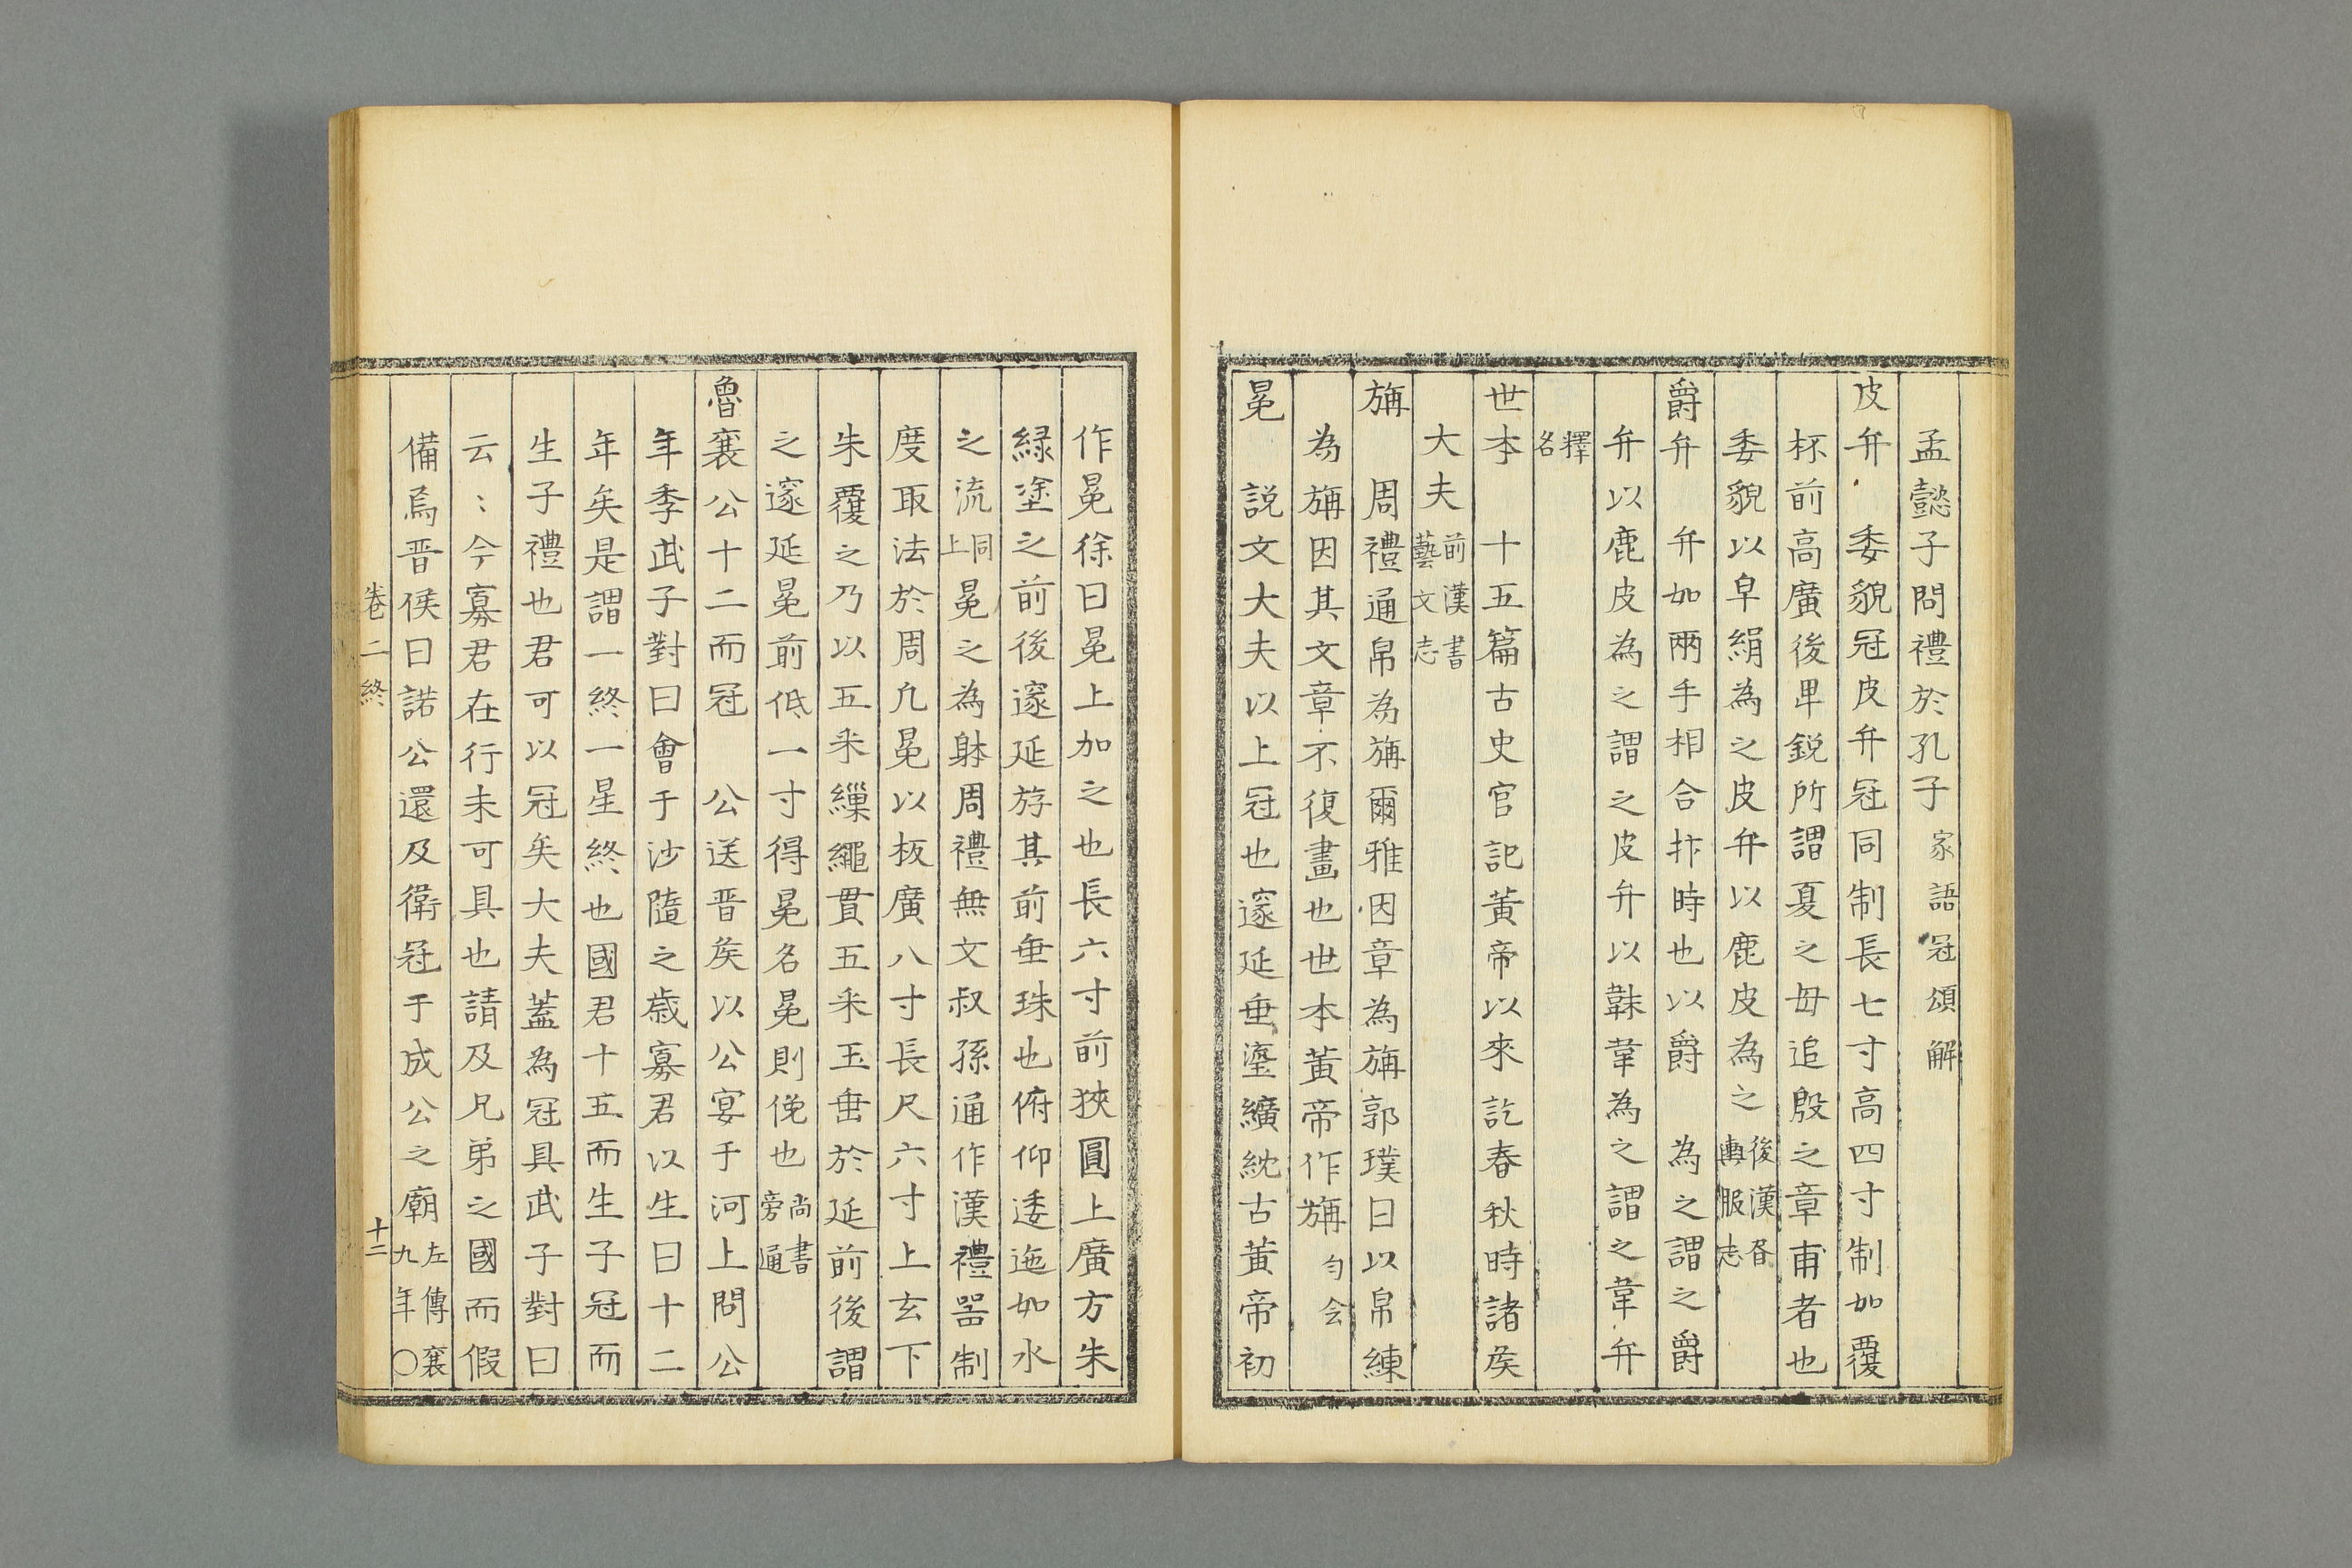 孟懿子問禮於孔子家語冠頌解
皮弁委貌冠皮弁冠同制長七寸高四寸制如覆
杯前高廣後卑銳所謂夏之毋追殷之章甫者也
委貌以皁絹為之皮弁以鹿皮為之後漢書輿服志
爵弁弁如兩手相合抃時也以爵為之謂之爵
弁以鹿皮為之謂之皮弁以韎韋為之謂之韋弁
釋名
世本十五篇古史官記黃帝以來訖春秋時諸矦
大夫前漢書藝文志
旃周禮通帛為旃爾雅因章為旃郭璞曰以帛練
為旃因其文章不復畫也世本黃帝作旃勻会
冕說文大夫以上冠也邃延垂瑬纊紞古黃帝初
作冕徐曰冕上加之也長六寸前狹圓上廣方朱
緑塗之前後邃延斿其前垂珠也俯仰逶迤如水
之流同上冕之為躰周禮無文叔孫通作漢禮噐制
度取法於周凢冕以板廣八寸長尺六寸上玄下
朱覆之乃以五采繅繩貫五采玉垂於延前後謂
之邃延冕前低一寸得冕名冕則俛也尚書旁通
魯襄公十二而冠公送晋矦以公宴于河上問公
年季武子對曰會于沙隨之歳寡君以生曰十二
年矣是謂一終一星終也國君十五而生子冠而
生子禮也君可以冠矣大夫蓋為冠具武子對曰
云〻今寡君在行未可具也請及兄弟之國而假
備焉晋侯曰諾公還及衛冠于成公之廟左傳襄九年〇
卷二終
十二